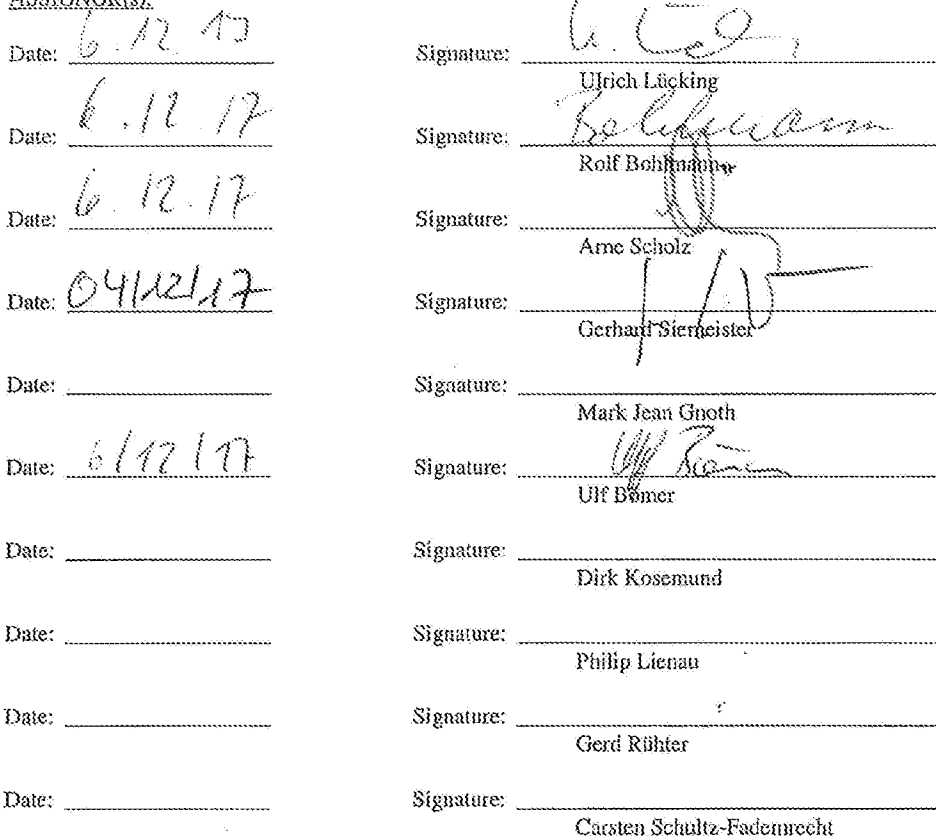 ASSIGNOR(S):
Date: 6.12.17 Signature:
Ulrich Lücking
Date: 6.12.17 Signature: Bohlmann
Rolf Bohlmann
Date: 6.12.17 Signature:
Arne Scholz
Date: 04/12/17 Signature:
Gerhard Siemeister
Date: Signature:
Mark Jean Gnoth
Date: 6/12/17 Signature: Ulf Bömer
Ulf Bömer
Date: Signature:
Dirk Kosemund
Date: Signature:
Philip Lienau
Date: Signature:
Gerd Rühter
Date: Signature:
Carsten Schultz-Fademrecht